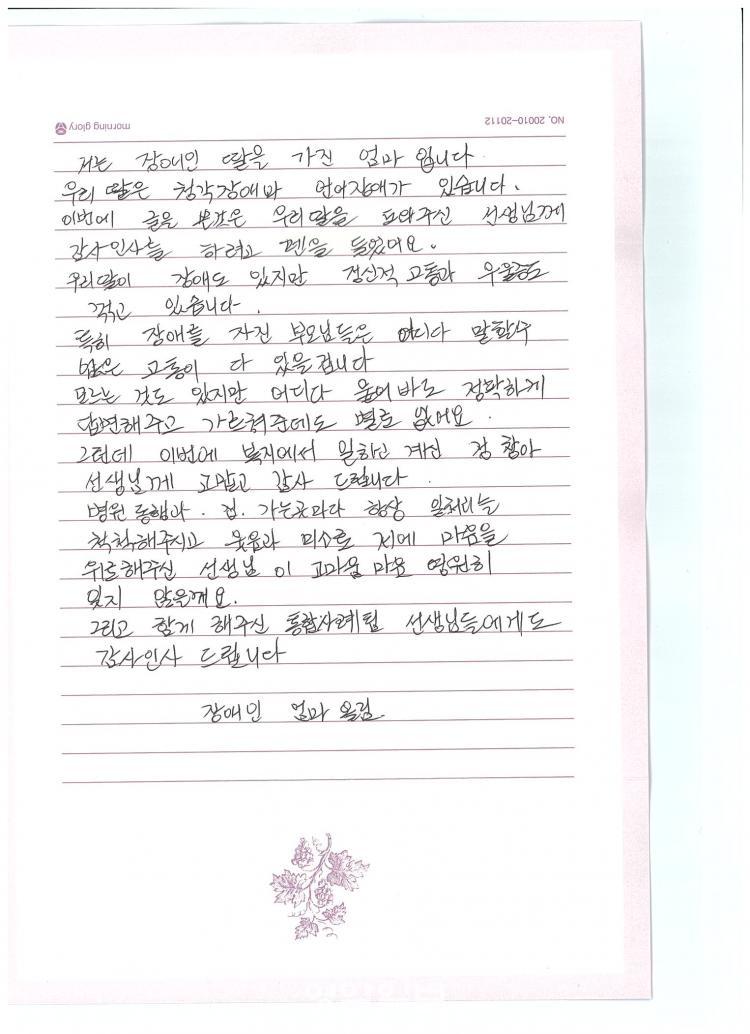 morning glory
NO. 20010-20112
저는 장애인 딸을 가진 엄마 입니다.
우리 딸은 청각장애와 언어장애가 있습니다.
이번에 글을 쓴것은 우리딸을 도와주신 선생님께
감사인사를 하려고 펜을 들었어요.
우리딸이 장애도 있지만 정신적 고통과 우울증도
겪고 있습니다.
특히 장애를 가진 부모님들은 어디다 말할수
없은 고통이 다 있을겁니다
모르는 것도 있지만 어디다 물어바도 정확하게
답변해주고 가르켜준데도 별로 없어요.
그런데 이번에 복지에서 일하고 계신 김
선생님께 고맙고 감사 드립니다.
병원동행과. 집. 가는곳마다 항상 일처리를
척척해주시고 웃음과 미소로 저에 마음을
위로해주신 선생님 이 고마움 마음 영원히
잊지 않을께요.
그리고 함께 해주신 통합사례팀 선생님들에게도
감사인사 드립니다
장애인 엄마 올림.